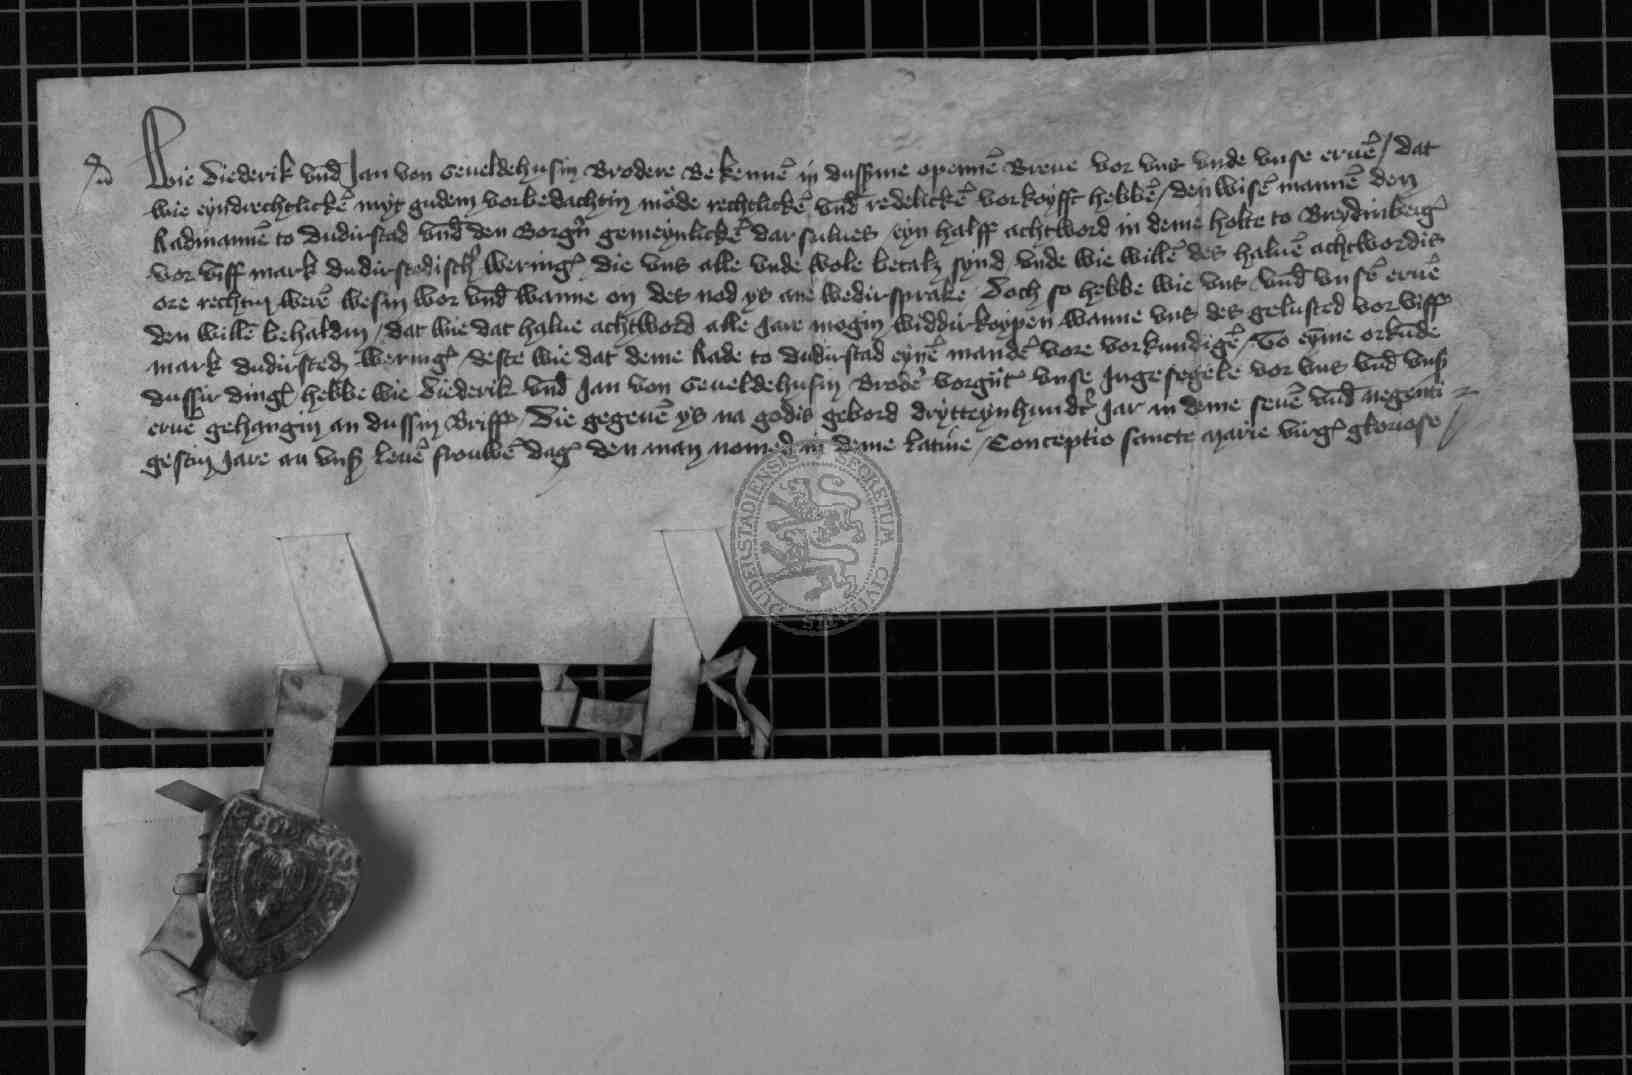 Wie Diederik vnd Jan von Geueldehusin Brodere Bekennē in dussme opennē Breue vor vns vnde vnse eruē / dat
wie eyndrechtlickē myt gudem vorbedachtin mode rechtlickē vnd redelickē vorkoyfft hebbē / den wisē mannē den
Radmannē to Dudirstad vnd den Borgrn gemeynlickē dar sulues eyn halff achtword in deme holte to Breydinberg
vor viff mark dudirstedisch wering die vns alle vnde wole betalt synd / vnde wie willē des haluē achtwordis
ore rechtin werē wesin wor vnd wanne on des nod ys ane wedirsprake Doch so hebbe wie vns vnd vnsē eruē
den willē behaldin / dat wie dat halue achtword alle Jare mogin widdir koypen wanne vns des gelusted vor viff
mark dudirsted wering / deste wie dat deme Rade to dudirstad eynē mandē vore vorkundigē / To eyme orkunde
dussir ding hebbe wie Diederik vnd Jan von Geueldehusin Broder vorgnt vnse Jngesegele vor vns vnd vnß
eruē gehangin an dussin Briff / Die gegeuē ys na godis gebord drytteynhundt Jar in deme seuē vnd negenti
gestin Jare an vnß leuē frouwē dag den man nomed in deme latine / Conceptio sancte Marie virg gloriose
SECRETUM CIVITATIS DUDERSTADIENSIS